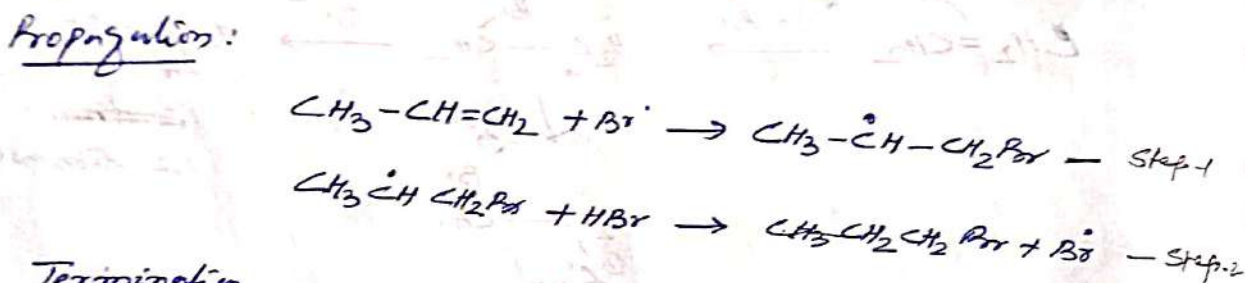 Propagation:
CH₃-CH=CH₂ + Br˙ → CH₃-ĊH-CH₂Br — Step-1
CH₃ĊH CH₂Br + HBr → CH₃CH₂CH₂Br + Ḃr — Step-2
Termination